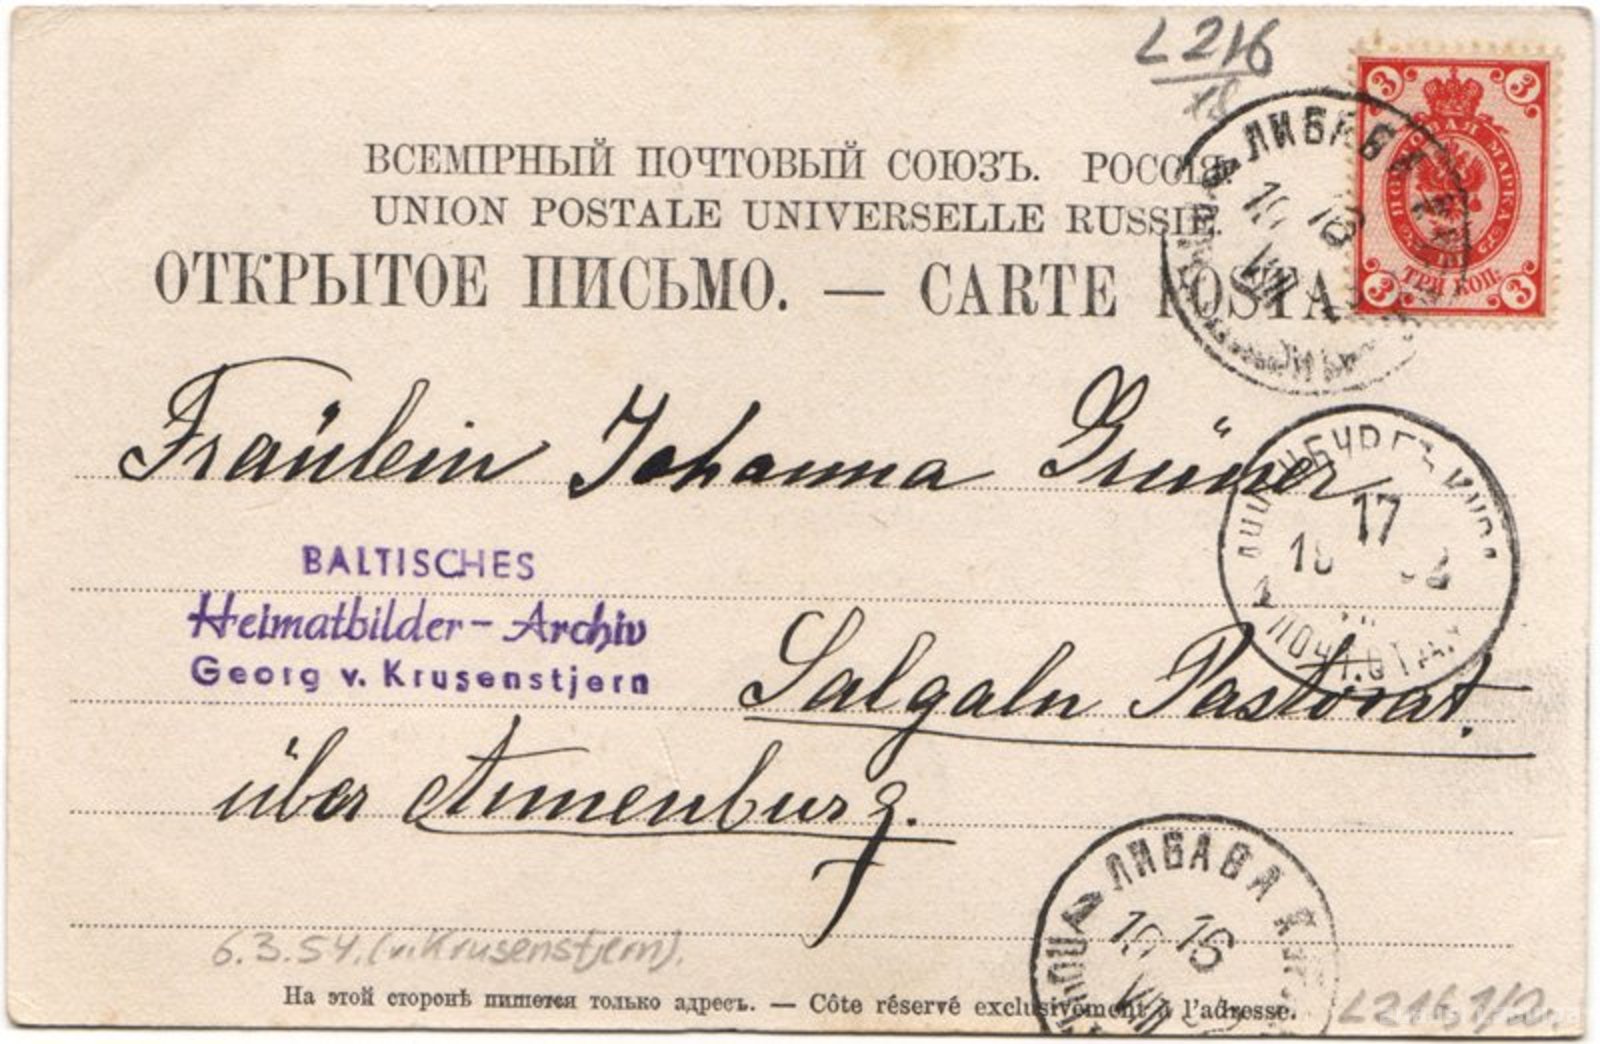 L 216
ВСЕМІРНЫЙ ПОЧТОВЫЙ СОЮЗЪ. РОССІЯ.
UNION POSTALE UNIVERSELLE RUSSIE.
ОТКРЫТОЕ ПИСЬМО. — CARTE POSTA
3 3
ПОЧТОВАЯ МАРКА
ТРИ КОП.
3 3
Fräulein Johanna Grüner
17
BALTISCHES
Heimatbilder - Archiv
Georg v. Krusenstjern
Salgaln Pastorat.
über Annenburg.
ЛИБАВА
6.3.54. (v. Krusenstjern).
На этой сторонѣ пишется только адресъ. — Côte réservé exclusivement à l'adresse.
L 216, 1/2.